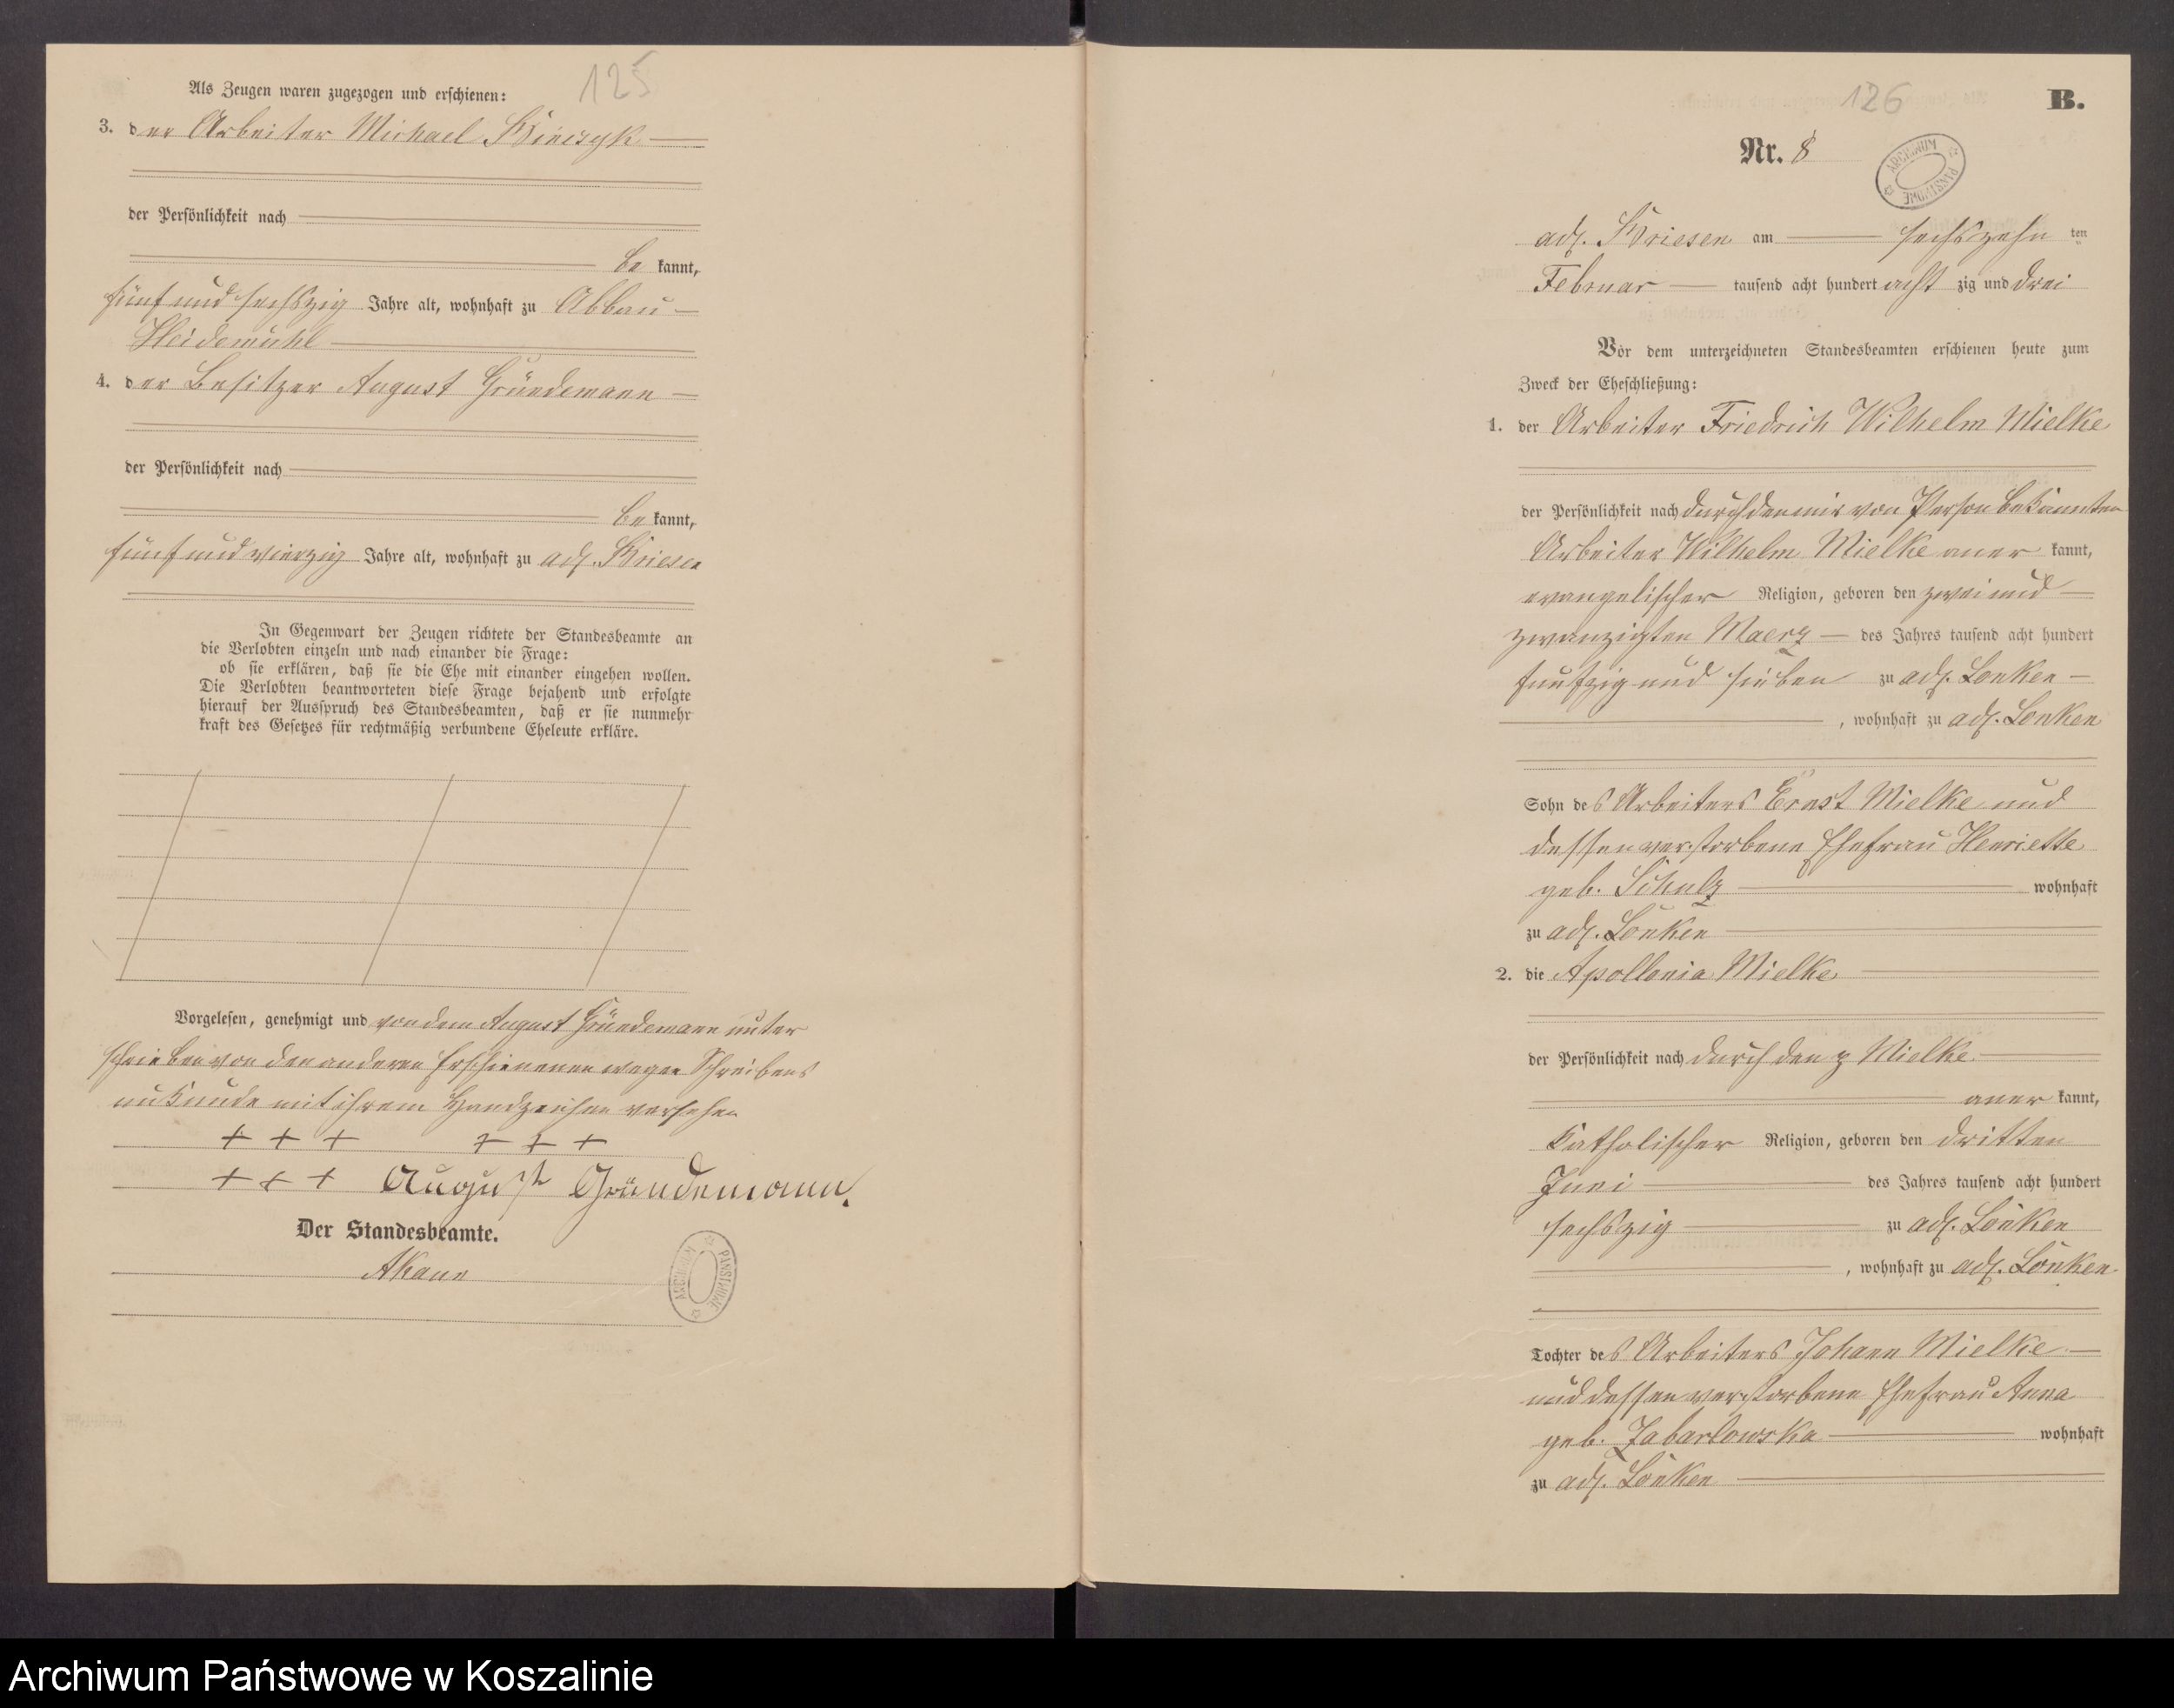 125
Als Zeugen waren zugezogen und erschienen:
3. der Arbeiter Michael
der Persönlichkeit nach
be kannt,
fünf und sechszig Jahre alt, wohnhaft zu Abbau
Heidemühl
4. der Besitzer August Gründemann
der Persönlichkeit nach
be kannt,
fünf und vierzig Jahre alt, wohnhaft zu adl. Briesen
In Gegenwart der Zeugen richtete der Standesbeamte an
die Verlobten einzeln und nach einander die Frage:
ob sie erklären, daß sie die Ehe mit einander eingehen wollen.
Die Verlobten beantworteten diese Frage bejahend und erfolgte
hierauf der Ausspruch des Standesbeamten, daß er sie nunmehr
kraft des Gesetzes für rechtmäßig verbundene Eheleute erkläre.
Vorgelesen, genehmigt und von dem August Gründemann unter
schrieben von den anderen Erschienenen wegen Schreibens
unkunde mit ihrem Handzeichen versehen
+ + + + + +
+ + + August Gründemann.
Der Standesbeamte.
ARCHIWUM PAŃSTWOWE
126
B.
Nr. 8
ARCHIWUM PAŃSTWOWE
adl. Briesen am sechszehn ten
Februar tausend acht hundert acht zig und drei
Vor dem unterzeichneten Standesbeamten erschienen heute zum
Zweck der Eheschließung:
1. der Arbeiter Friedrich Wilhelm Mielke
der Persönlichkeit nach durch den mir von Person bekannten
Arbeiter Wilhelm Mielke aner kannt,
evangelischer Religion, geboren den zwei und
zwanzigten Maerz des Jahres tausend acht hundert
funfzig und sieben zu adl. Lonken
, wohnhaft zu adl. Lonken
Sohn des Arbeiters Ernst Mielke und
dessen verstorbene Ehefrau Henriette
geb. Schulz wohnhaft
zu adl. Lonken
2. die Apollonia Mielke
der Persönlichkeit nach durch den p Mielke
aner kannt,
katholischer Religion, geboren den dritten
Juni des Jahres tausend acht hundert
sechszig zu adl. Lonken
, wohnhaft zu adl. Lonken
Tochter des Arbeiters Johann Mielke
und dessen verstorbene Ehefrau Anna
geb. wohnhaft
zu adl. Lonken
Archiwum Państwowe w Koszalinie